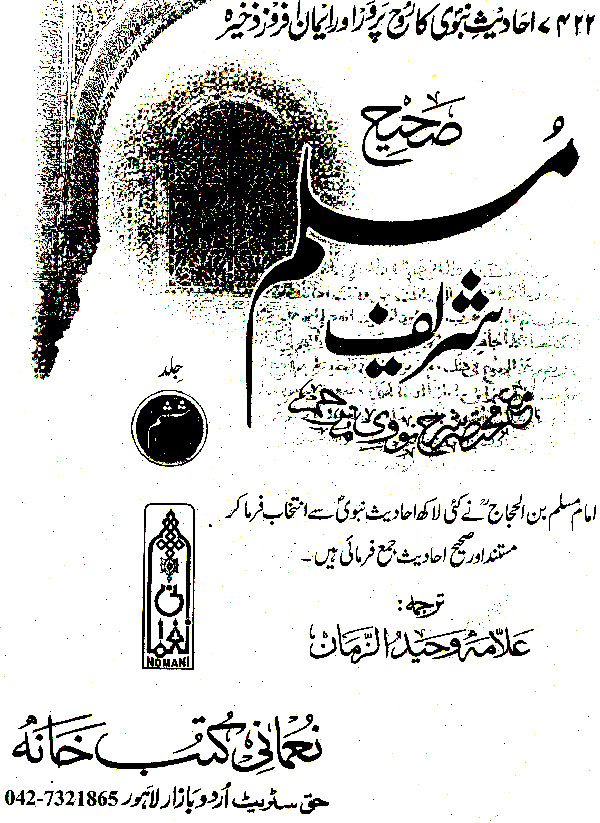 ۷۴۲۲ احادیثِ نبویؐ کا رُوح پَرور اور ایمان افروز ذخیرہ
صَحِیح
مُسلم
شریف
مع مختصر شرح نووی مترجم
جلد
ششم
امام مسلم بن الحجاجؒ نے کئی لاکھ احادیث نبویؐ سے انتخاب فرما کر
مستند اور صحیح احادیث جمع فرمائی ہیں۔
ترجمہ:
علّامہ وحیدُ الزّمان
نعمانی
NOMANI
نعمانی کتب خانہ
حق سٹریٹ اُردو بازار لاہور 042-7321865